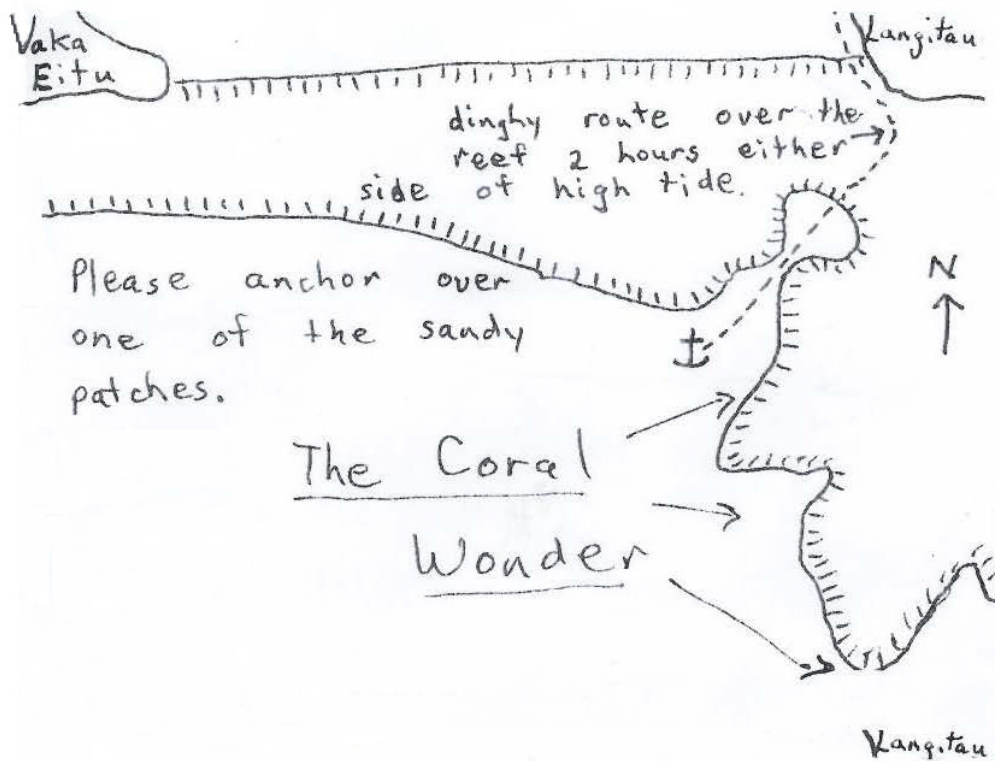 Vaka
Eitu
Langitau
dinghy route over the
reef 2 hours either
side of high tide.
Please anchor over
one of the sandy
patches.
N
The Coral
Wonder